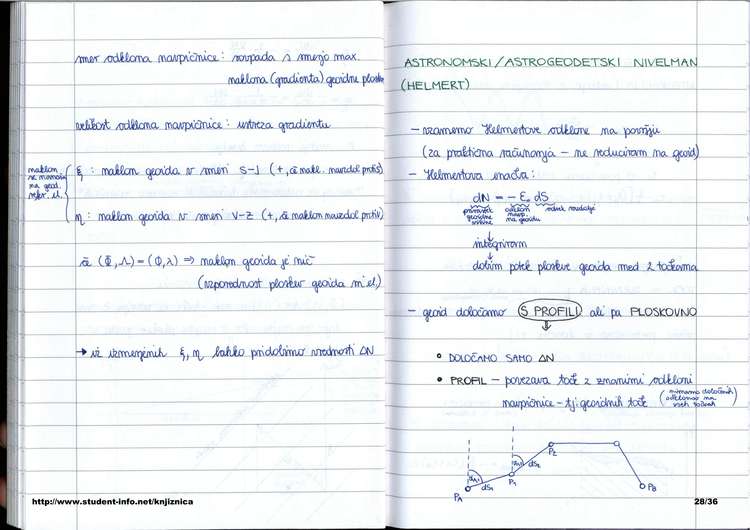 smer odklona navpičnice: sovpada s smerjo max.
naklona (gradienta) geoidne ploskve
velikost odklona navpičnice: ustreza gradientu
naklon
se nanaša
na geod.
refer. el.
ξ : naklon geoida v smeri S-J (+, če nakl. navzdol proti S)
η : naklon geoida v smeri V-Z (+, če naklon navzdol proti V)
če (Φ, Λ) = (φ, λ) ⇒ naklon geoida je nič
(vzporednost ploskev geoida in el.)
→ iz izmerjenih ξ, η lahko pridobimo vrednosti ΔN
http://www.student-info.net/knjiznica
ASTRONOMSKI/ASTROGEODETSKI NIVELMAN
(HELMERT)
- vzamemo Helmertove odklone na površju
(za praktična računanja - ne reduciram na geoid)
- Helmertova enačba:
dN = - ε₀ dS
prirastek
geoidne
odklon
navp.
na geoidu
integriram
↓
dobim potek ploskve geoida med 2 točkama
- geoid določamo S PROFILI ali pa PLOSKOVNO
• DOLOČAMO SAMO ΔN
• PROFIL - povezava točk z znanimi odkloni
navpičnice - tj. geoidnih točk
(nimamo določenih
odklonov na
vseh točkah)
P₂
dS₂
P₁
dS₁
P_A
P_B
28/36